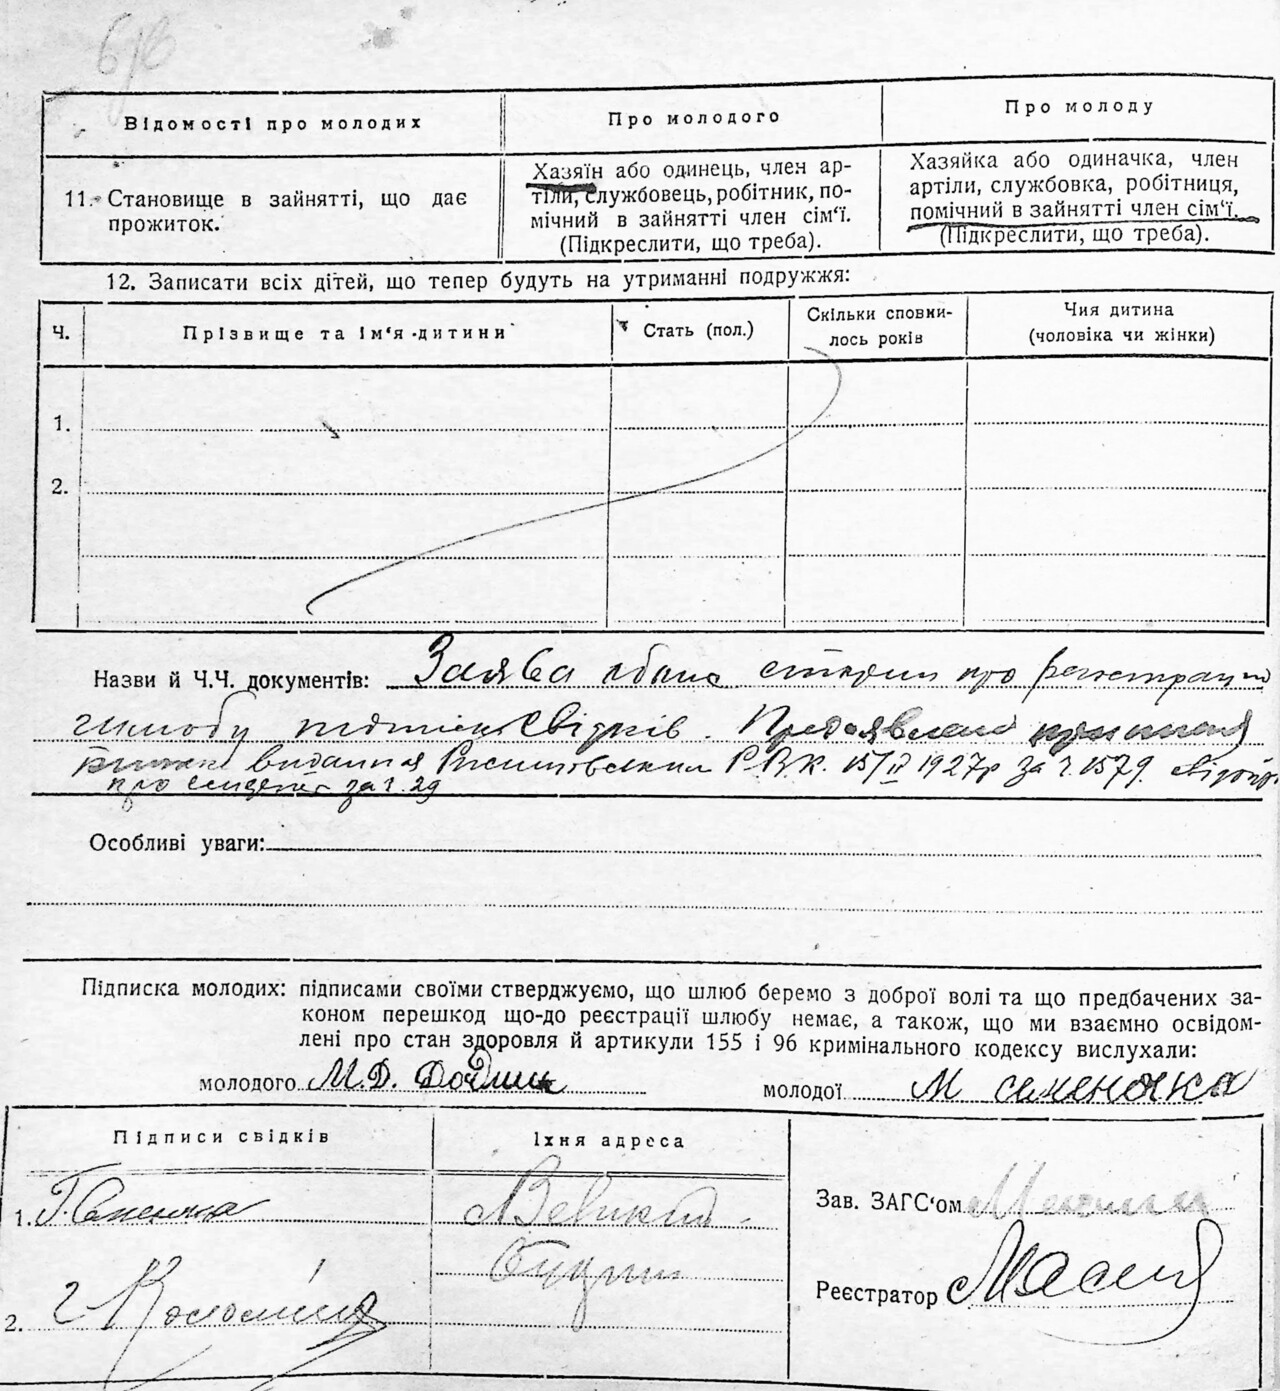 Відомості про молодих
Про молодого
Про молоду
11. Становище в зайнятті, що дає
прожиток.
Хазяїн або одинець, член ар-
тіли, службовець, робітник, по-
мічний в зайнятті член сім‘ї.
(Підкреслити, що треба).
Хазяйка або одиначка, член
артіли, службовка, робітниця,
помічний в зайнятті член сім‘ї.
(Підкреслити, що треба).
12. Записати всіх дітей, що тепер будуть на утриманні подружжя:
Ч.
Прізвище та ім‘я дитини
Стать (пол.)
Скільки сповни-
лось років
Чия дитина
(чоловіка чи жінки)
1.
2.
Назви й Ч.Ч. документів: Заява обоих сторон про регистрацию
шлюбу підписи свідків.
видання Р.В.К. 15/II 1927р за ч. 1579
про за ч. 29
Особливі уваги:
Підписка молодих: підписами своїми стверджуємо, що шлюб беремо з доброї волі та що предбачених за-
коном перешкод що-до реєстрації шлюбу немає, а також, що ми взаємно освідом-
лені про стан здоровля й артикули 155 і 96 кримінального кодексу вислухали:
молодого М.Д.
молодої М семеночка
Підписи свідків
Їхня адреса
1. Г.
Велики
Букрин
2. Г Коломієць
Зав. ЗАГС‘ом
Реєстратор